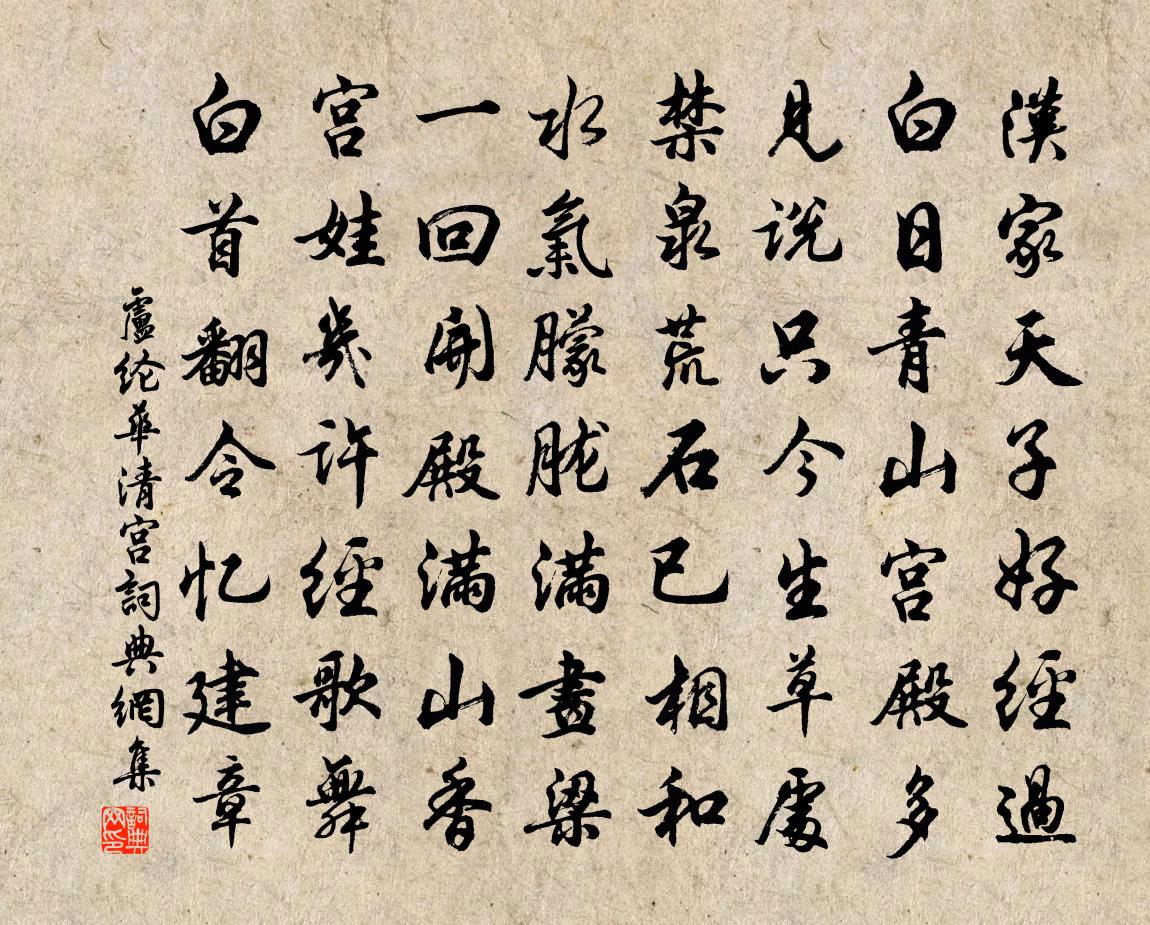 漢家天子好經過
白日青山宮殿多
見説只今生草處
禁泉荒石已相和
水氣朦朧滿畫梁
一回開殿滿山香
宮娃幾許經歌舞
白首翻令忆建章
盧纶華清宮詞典網集
詞典网印